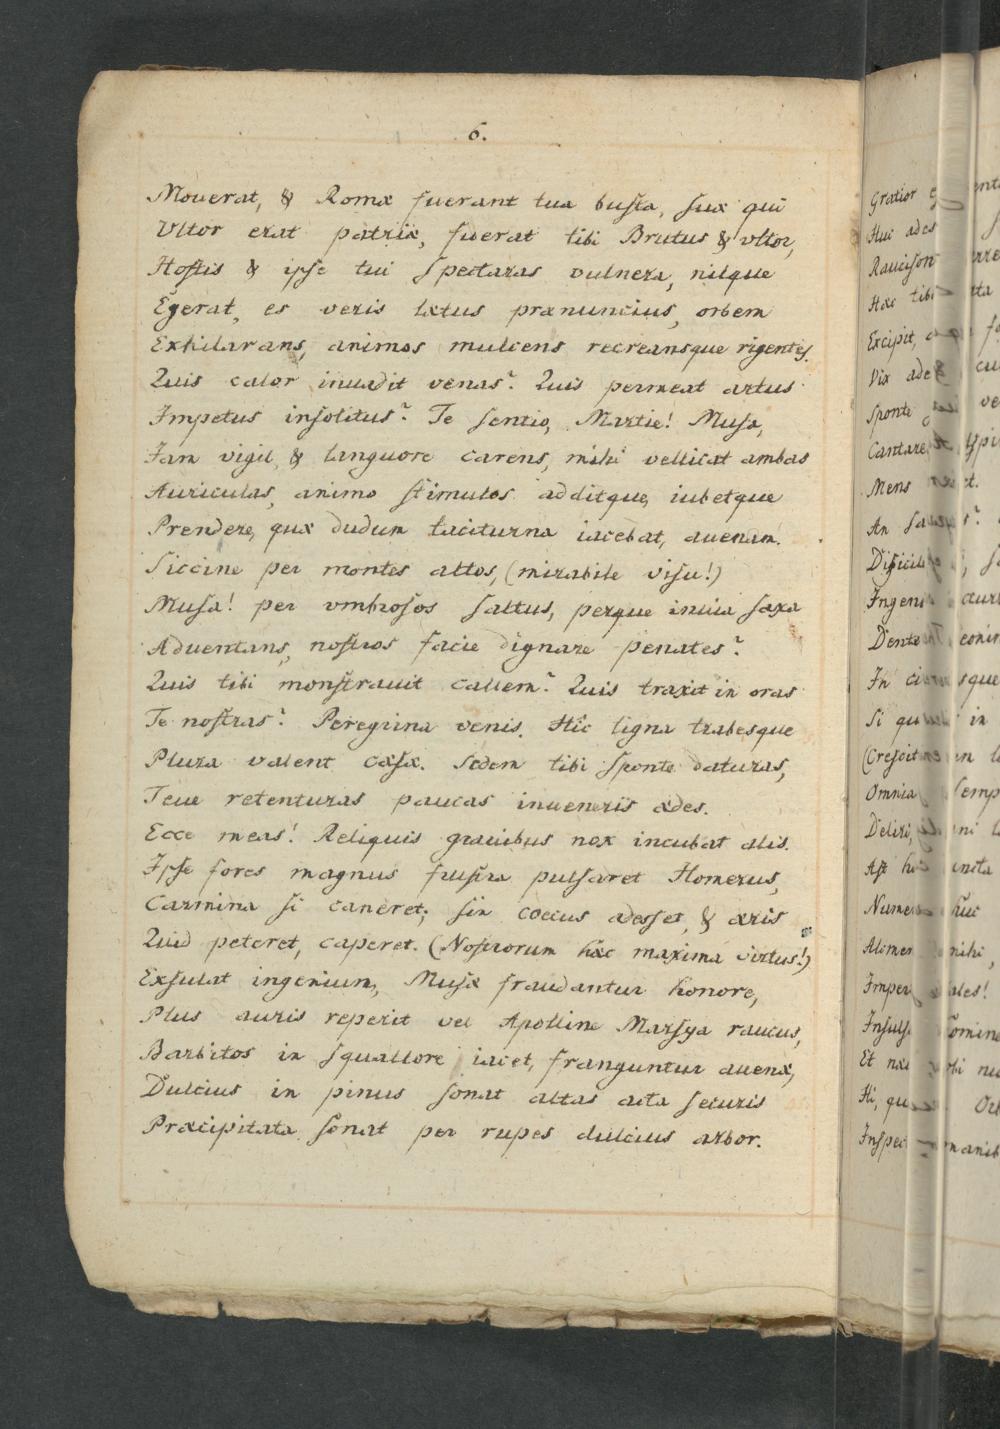 6.
Mouerat, & Romæ fuerant tua busta, suæ qui
Vltor erat patriæ, fuerat tibi Brutus & vltor,
Hostis & ipse tui spectaras vulnera, nilque
Egerat, es veris lætus prænuncius, orbem
Exhilarans, animos mulcens recreansque rigentes.
Quis calor inuadit venas? Quis permeat artus
Impetus insolitus? Te sentio, Martie! Musa,
Jam vigil, & languore carens, mihi vellicat ambas
Auriculas, animo stimulos additque, iubetque
Prendere, quæ dudum taciturna iacebat, auenam.
Siccine per montes altos, (mirabile visu!)
Musa! per vmbrosos saltus, perque inuia saxa
Aduentans, nostros facie dignare penates?
Quis tibi monstrauit callem? Quis traxit in oras
Te nostras? Peregrina venis. Hic ligna trabesque
Plura valent cæsæ. Sedem tibi sponte daturas,
Teue retenturas paucas inueneris ædes.
Ecce meas! Reliquis grauibus nox incubat alis.
Ipse fores magnus frustra pulsaret Homerus,
Carmina si caneret; sin coecus adesset, & æris
Quid peteret, caperet. (Nostrorum hæc maxima virtus!)
Exsulat ingenium, Musæ fraudantur honore,
Plus auris reperit vel Apolline Marsya raucus,
Barbitos in squallore iacet, franguntur auenæ,
Dulcius in pinus sonat altas acta securis
Præcipitata sonat per rupes dulcius arbor.
Gratior
Huc ades
Raucison
Hæc tibi
Excipit,
Vix ades
Sponte
Cantare
Mens
An
Difficil
Ingeni
Dente
In
Si
(Crescit
Omnia
Deliri,
Ast
Numer huc
Alimen mihi,
Imper ales!
Insuls omine
Et
Hi,
Inspec manib